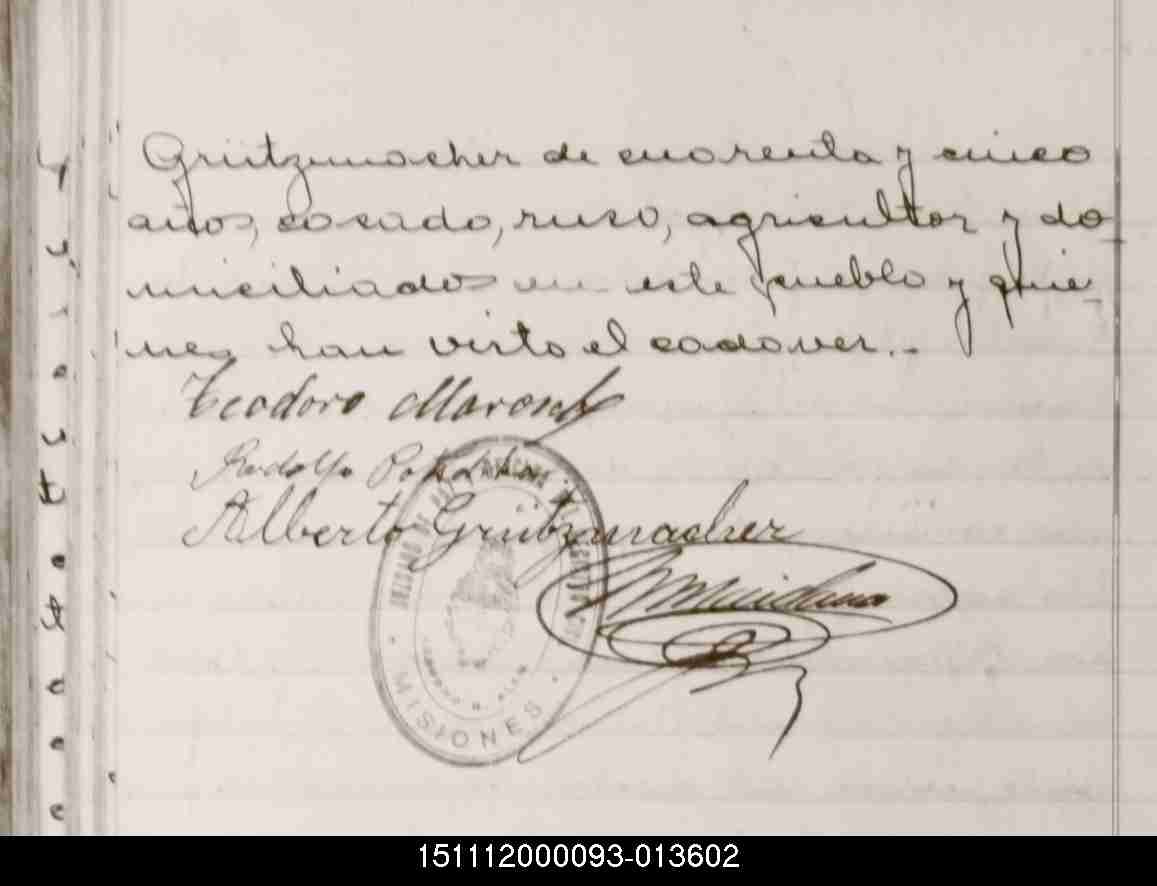 Grützmacher de cuarenta y cinco
años, casado, ruso, agricultor y do-
miciliados en este pueblo y quie-
nes han visto el cadaver.-
Teodoro
Rodolfo
Alberto Grützmacher
MISIONES
151112000093-013602